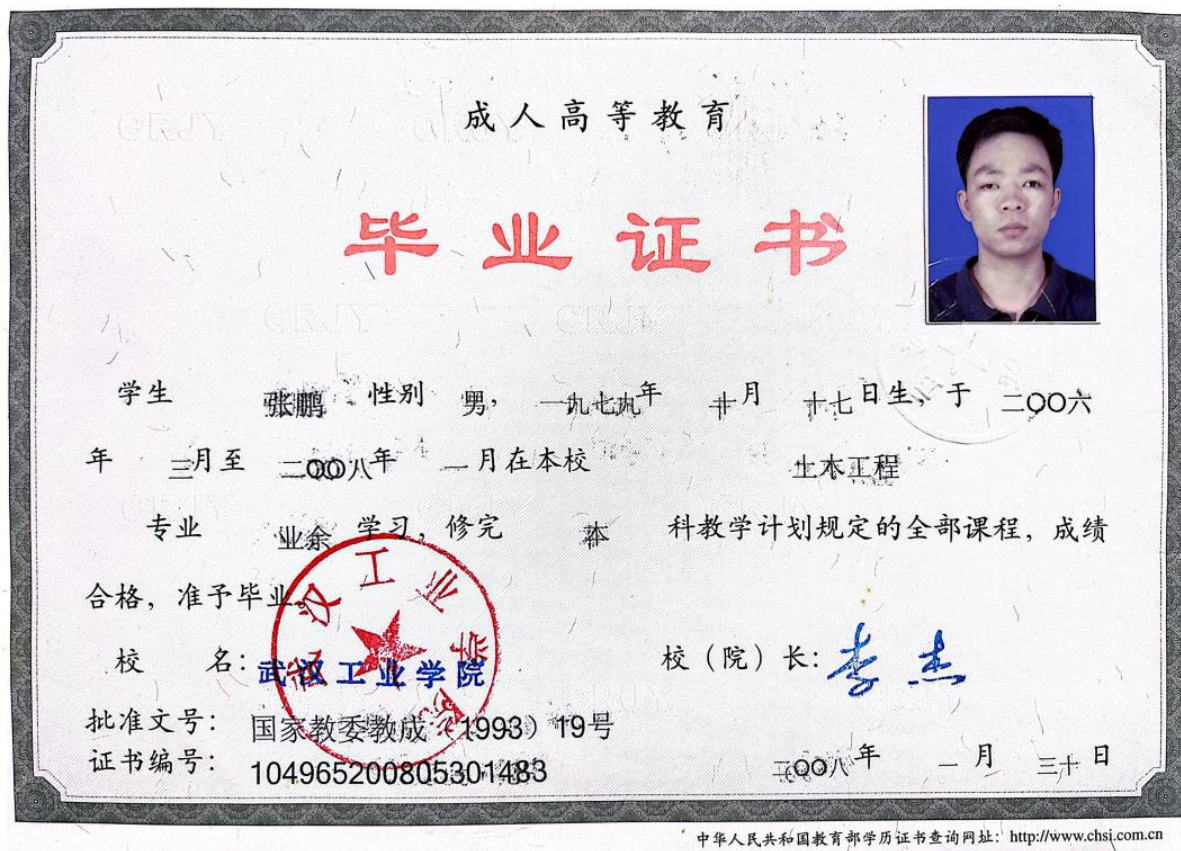 成人高等教育
毕业证书
学生 张鹏 性别 男, 一九七九年 十月 十七日生, 于 二〇〇六
年 三月至 二〇〇八年 一月在本校 土木工程
专业 业余 学习, 修完 本 科教学计划规定的全部课程, 成绩
合格, 准予毕业。
校 名: 武汉工业学院 校(院)长: 李杰
批准文号: 国家教委教成(1993)19号
证书编号: 104965200805301483
二〇〇八年 一月 三十日
武汉工业学院
中华人民共和国教育部学历证书查询网址: http://www.chsi.com.cn